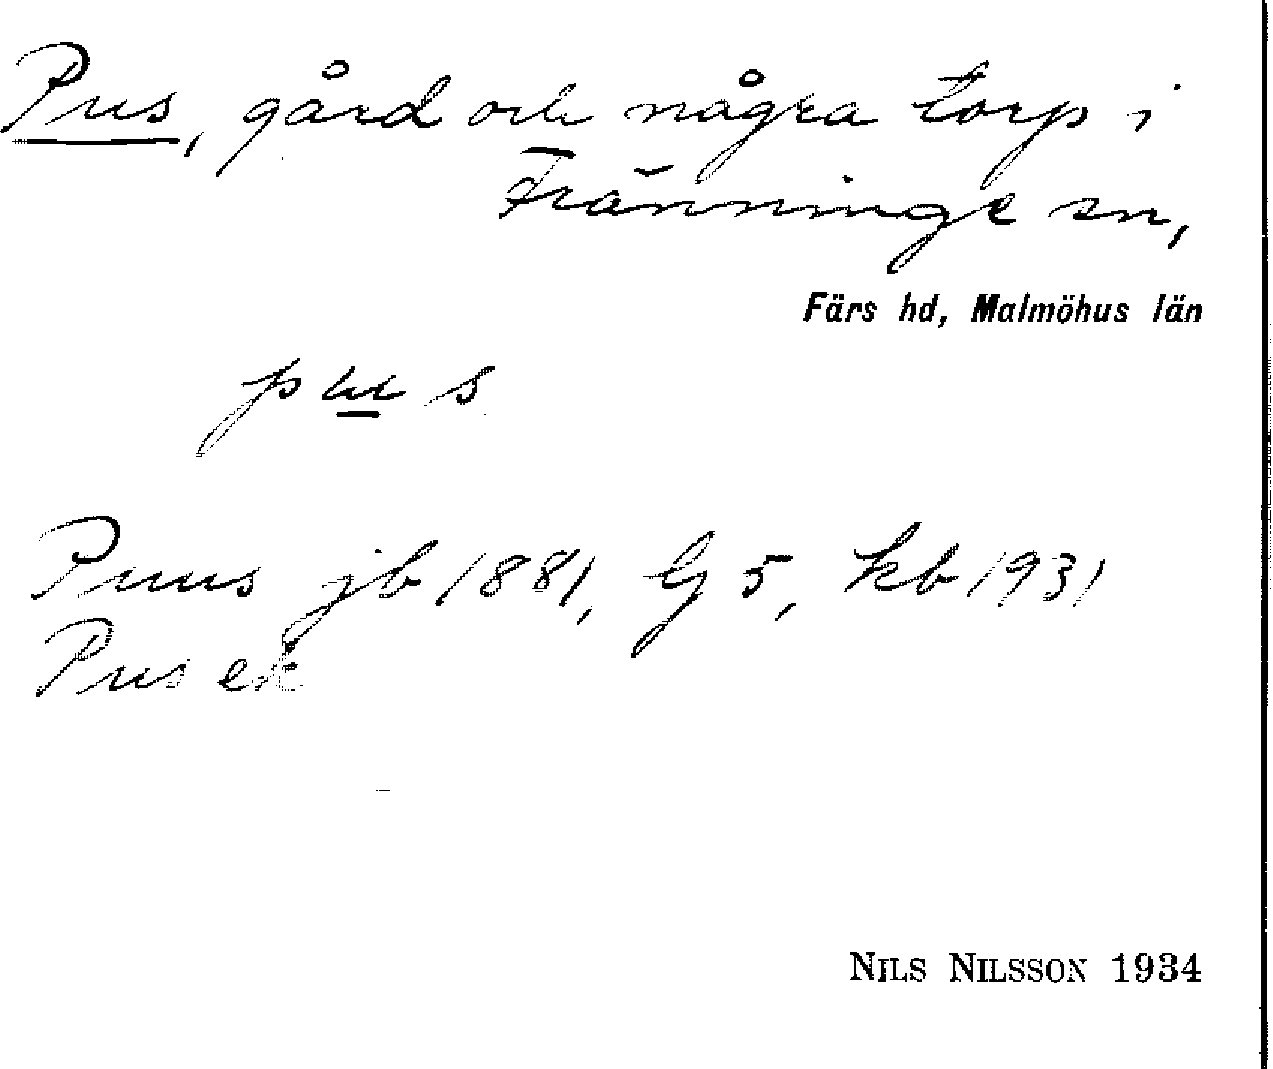 Pus, gård och några torp i
Fränninge sn,
Färs hd, Malmöhus län
pus
Puus jb 1881, G 5, kb 1931
Pus ek
NILS NILSSON 1934